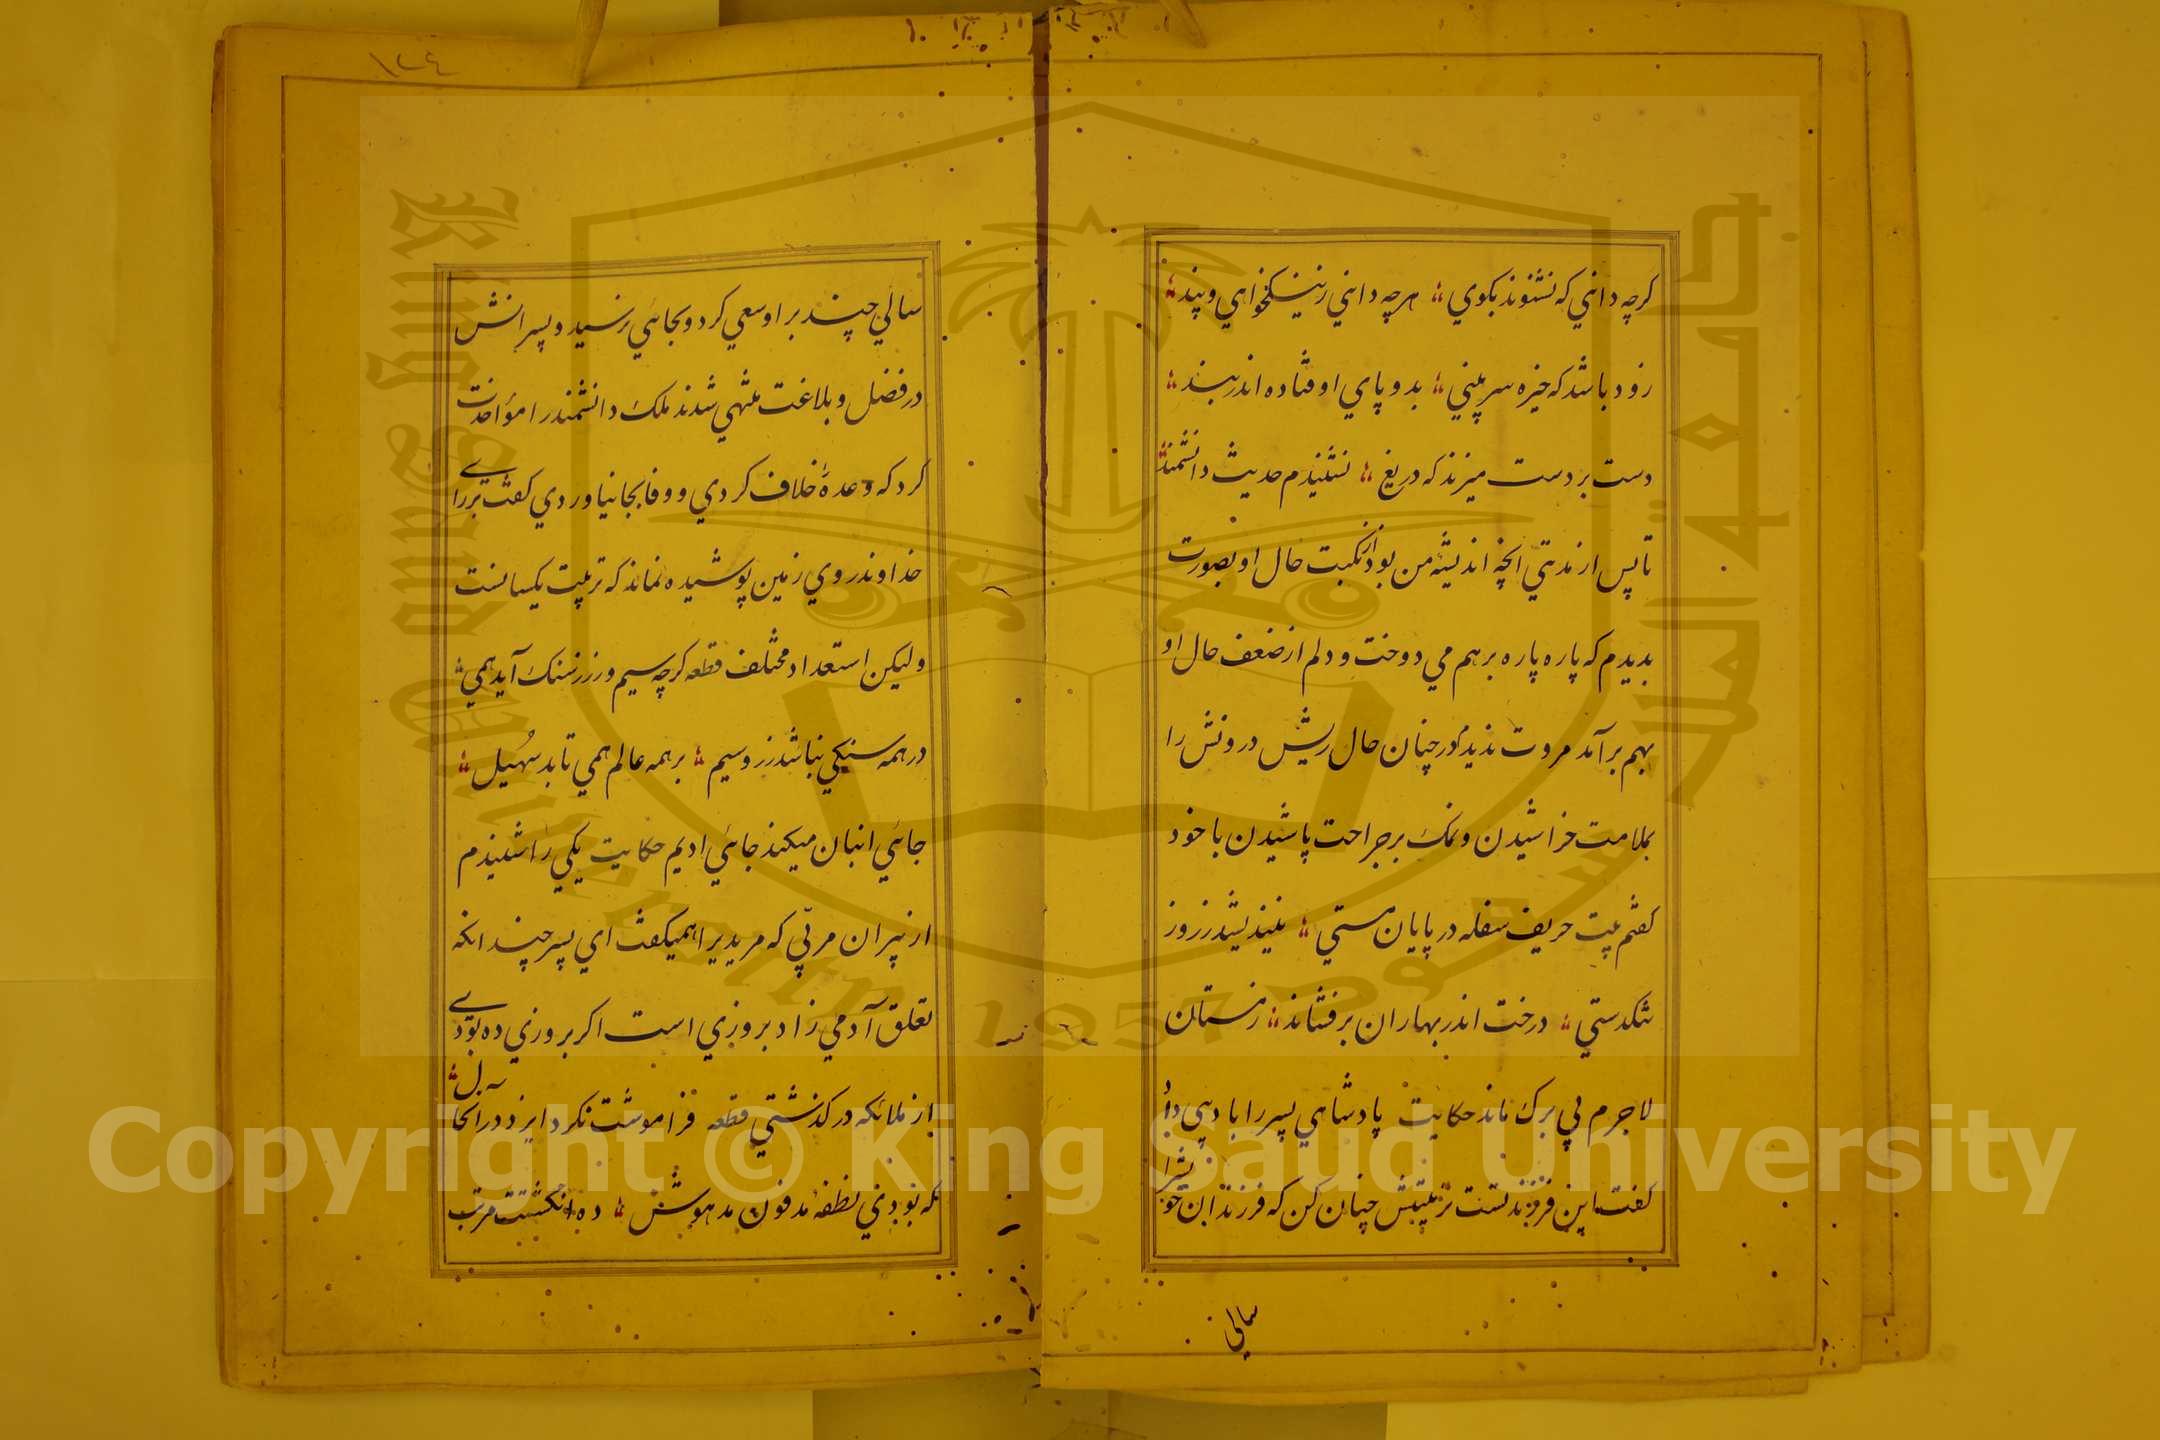 كرچه داني كه نشنوند بكوي هرچه داني ز نيكخواهي و پند
زود باشد كه خيره سر بيني بدو پاي اوفتاده اندر بند
دست بر دست ميزند كه دريغ نشنيدم حديث دانشمند
تا پس از مدتي انچه انديشه من بود از نكبت حال او بصورت
بديدم كه پاره پاره برهم مي دوخت و دلم از ضعف حال او
بهم برآمد مروت نديدم در چنان حال ريش درونش را
بملامت خراشيدن و نمك بر جراحت پاشيدن با خود
كفتم بيت حريف سفله در پايان مستي نينديشد ز روز
تنكدستي درخت اندر بهاران برفشاند زمستان
لاجرم بي برك ماند حكايت پادشاهي پسر را باديبي داد
كفت اين فرزند تست تربيتش چنان كن كه فرزندان خويش را
سالي
١٢٤
سالي چند بر او سعي كرد و بجائي نرسيد و پسرانش
در فضل و بلاغت منتهي شدند ملك دانشمند را مؤاخذت
كرد كه وعده خلاف كردي و وفا بجا نياوردي كفت بر راے
خداوند روي زمين پوشيده نماند كه تربيت يكسانست
وليكن استعداد مختلف قطعه كرچه سيم و زر ز سنك آيد همي
در همه سنكي نباشد زر و سيم بر همه عالم همي تابد سهيل
جائي انبان ميكند جائي اديم حكايت يكي را شنيدم
از پيران مربي كه مريدي را هميكفت اي پسر چندانكه
تعلق آدمي زاد بروزي است اكر بروزي ده بودے
از ملائكه در كذشتي قطعه فراموشت نكرد ايزد در آنحال
كه بودي نطفه مدفون مدهوش ده انكشتت مرتب
Copyright © King Saud University
King Saud University
1957
جامعة الملك سعود